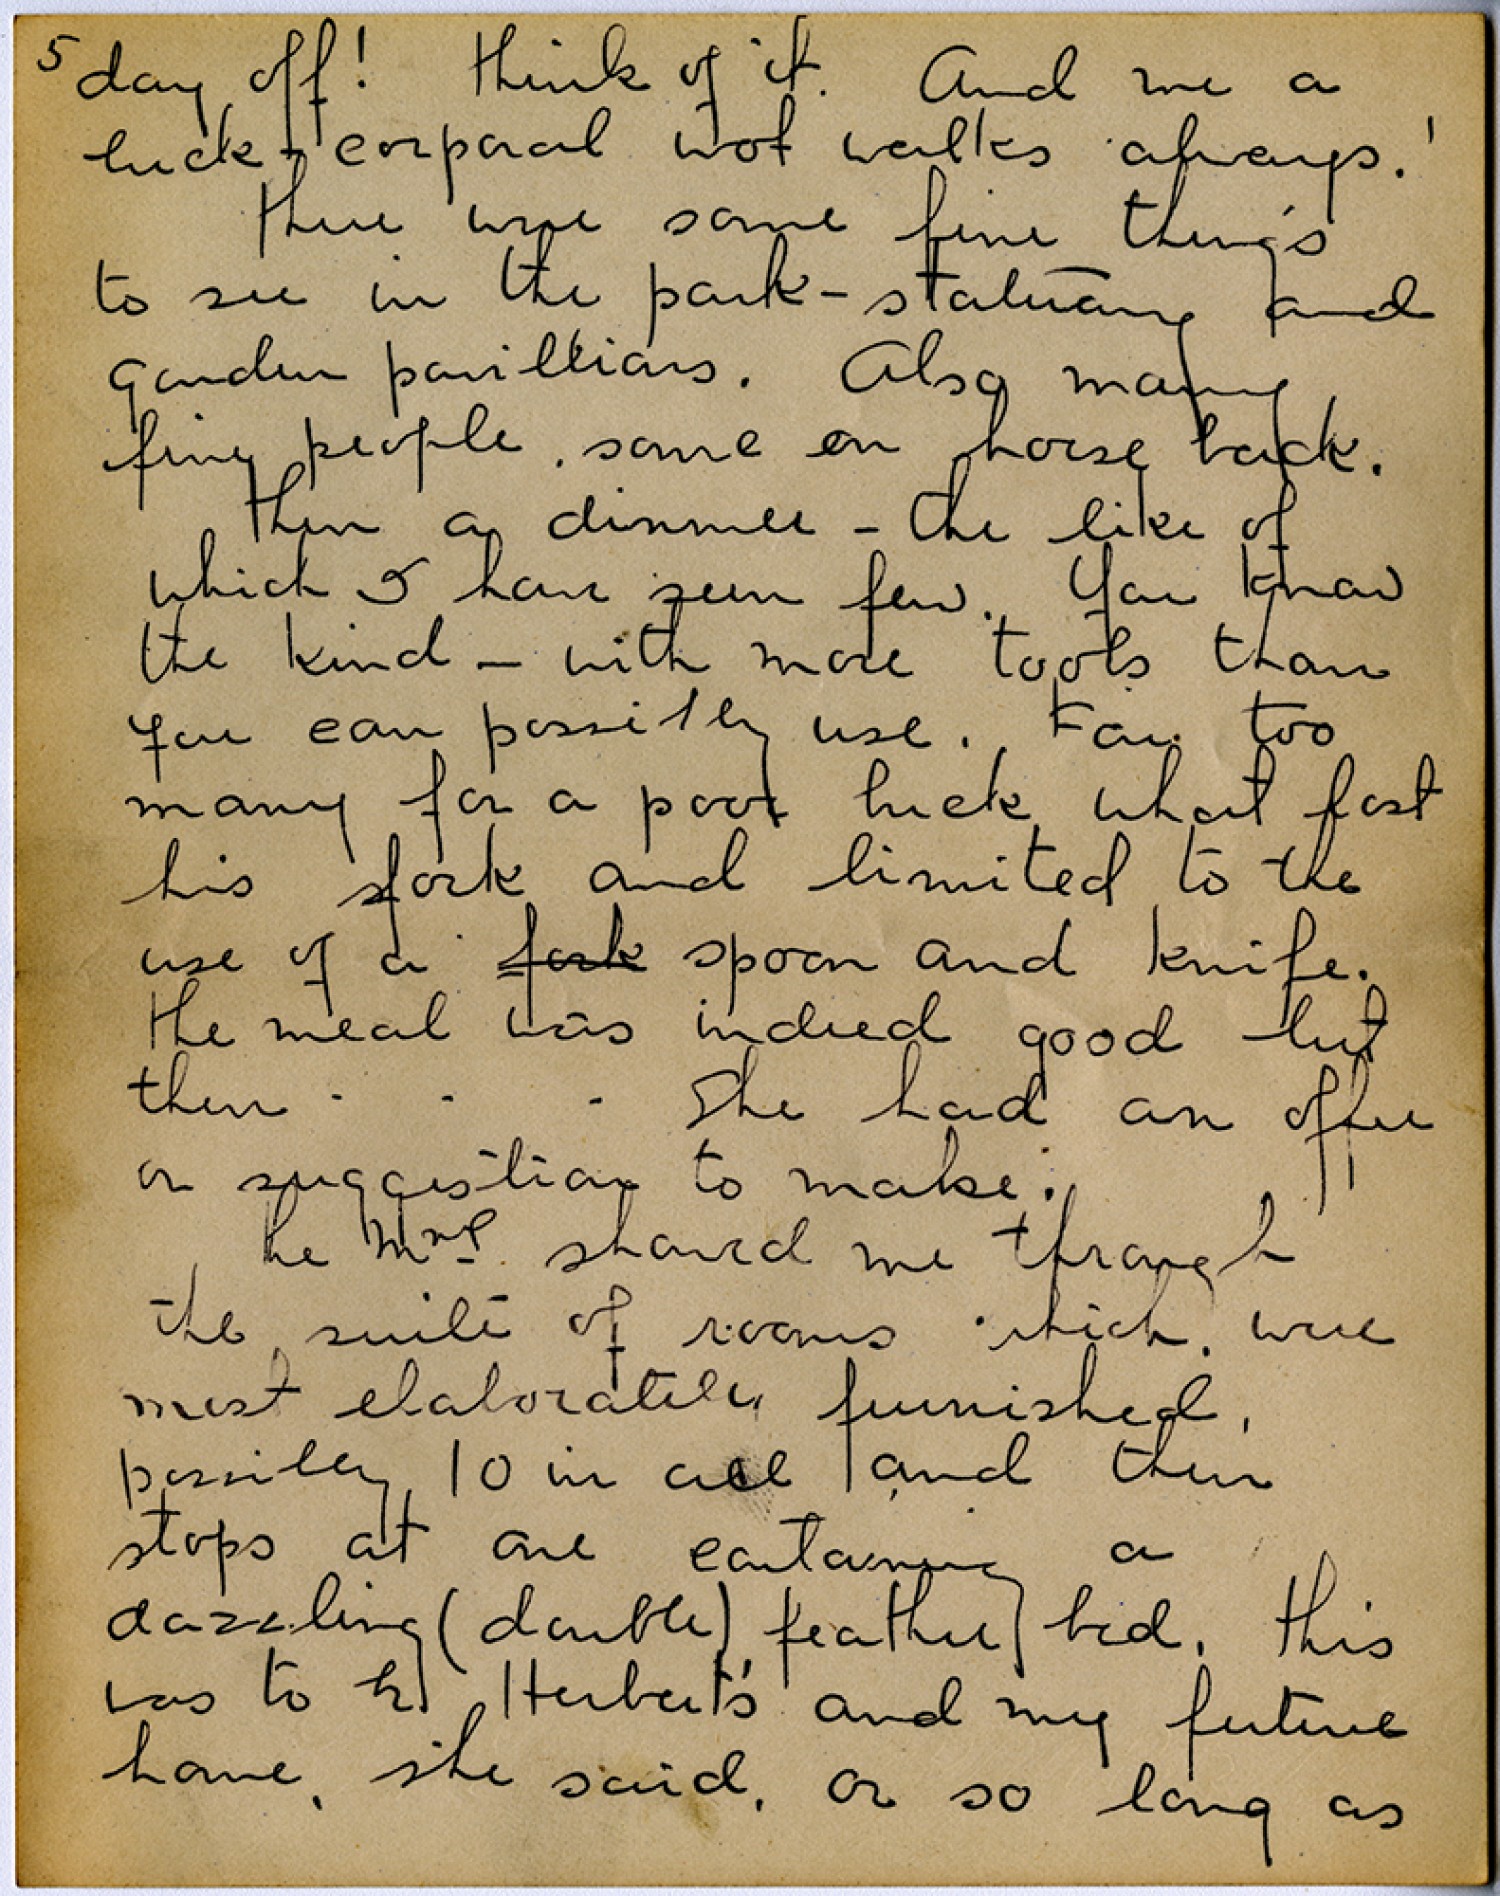 5 day off! Think of it. And me a
buck-corporal wot walks always!
There were some fine things
to see in the park - statuary and
garden pavillians. Also many
fine people, some on horse back.
Then a dinner - the like of
which I have seen few. You know
the kind - with more tools than
you can possibly use. Far too
many for a poor buck what lost
his fork and limited to the
use of a fork spoon and knife.
The meal was indeed good but
then - - - She had an offer
or suggestion to make.
The Mme showed me through
the suite of rooms which were
most elaborately furnished,
possibly 10 in all and then
stops at one containing a
dazzling (double) feather bed. This
was to be Herbert's and my future
home, she said, or so long as